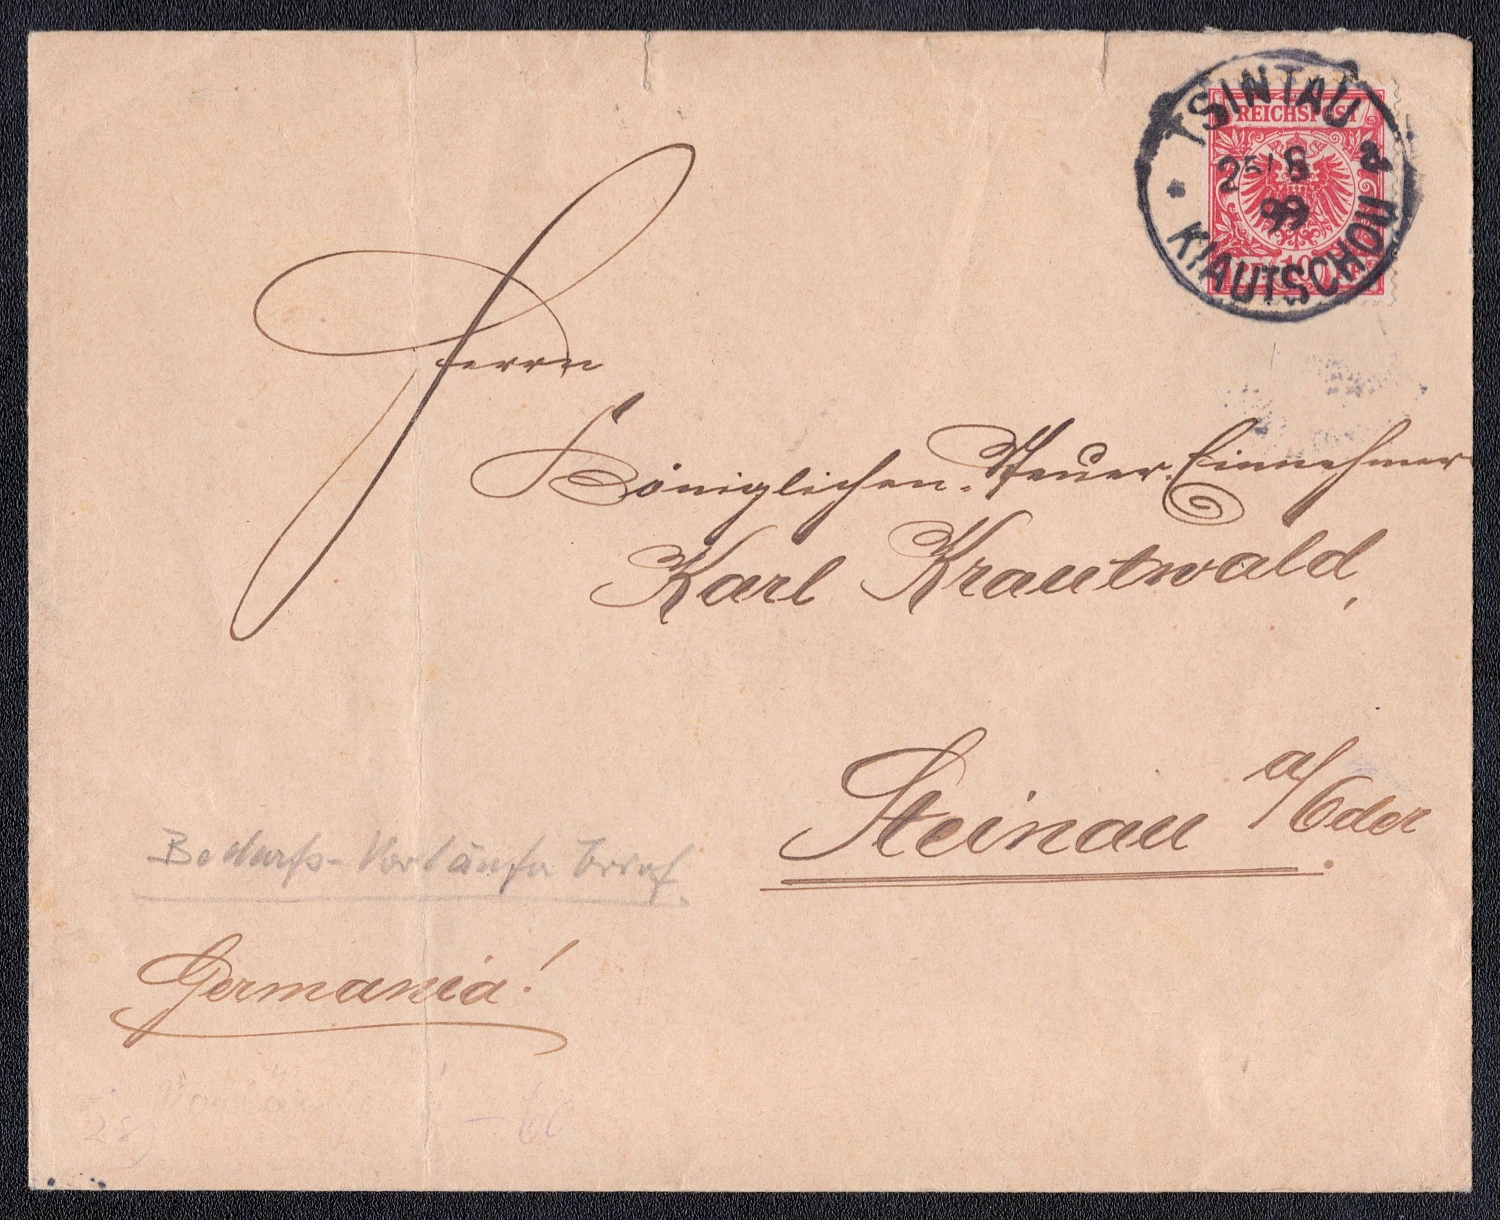 TSINTAU
REICHSPOST
25/8
99
a
KIAUTSCHOU
10
Herrn
Königlichen Steuer-Einnehmer
Karl Krautwald,
Steinau a/Oder.
Bedarfs-Vorläufer Brief
Germania!
28)